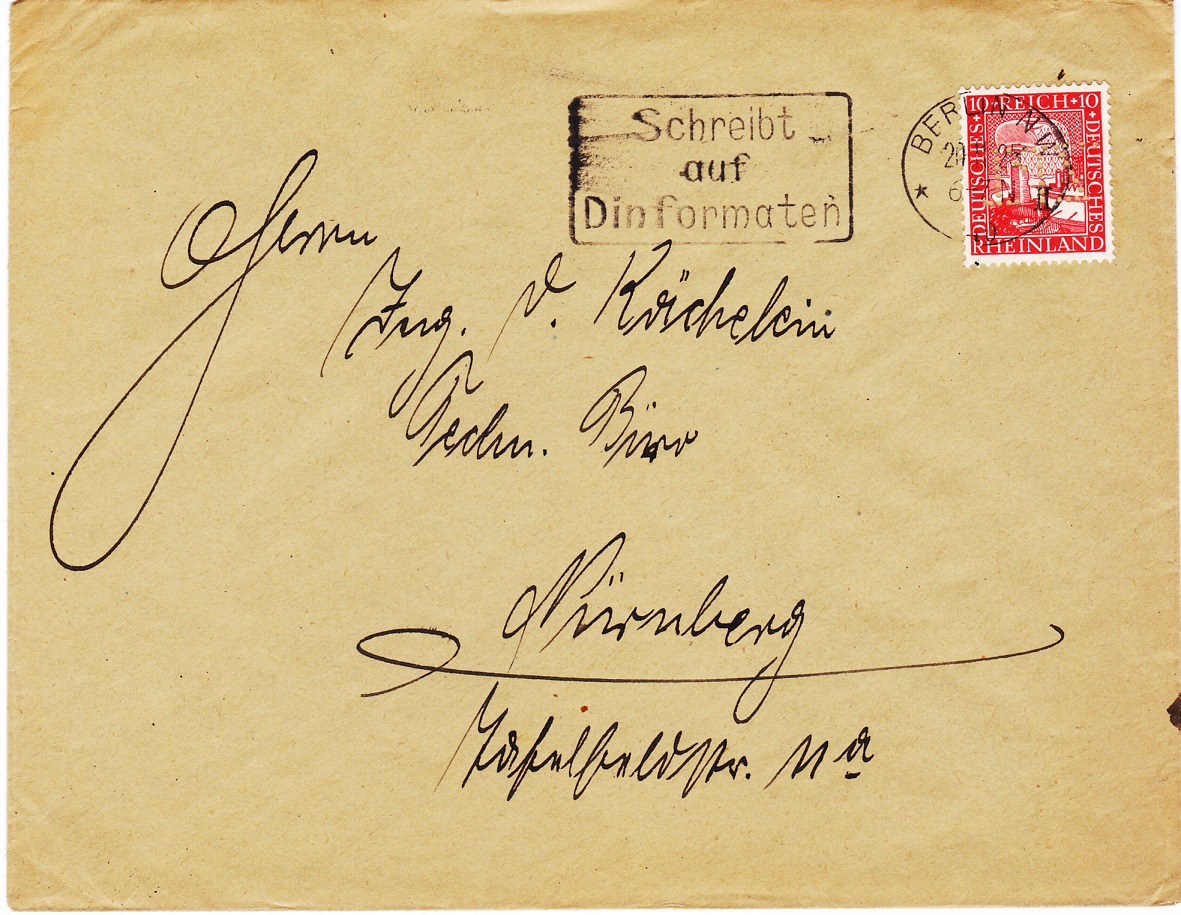 Schreibt
auf
Dinformaten
BERLIN NW
6-7 N
10 REICH 10
DEUTSCHES
DEUTSCHES
RHEINLAND
Herrn
Ing. D. Kächelein
Techn. Büro
Nürnberg
Tafelfeldstr. 11a